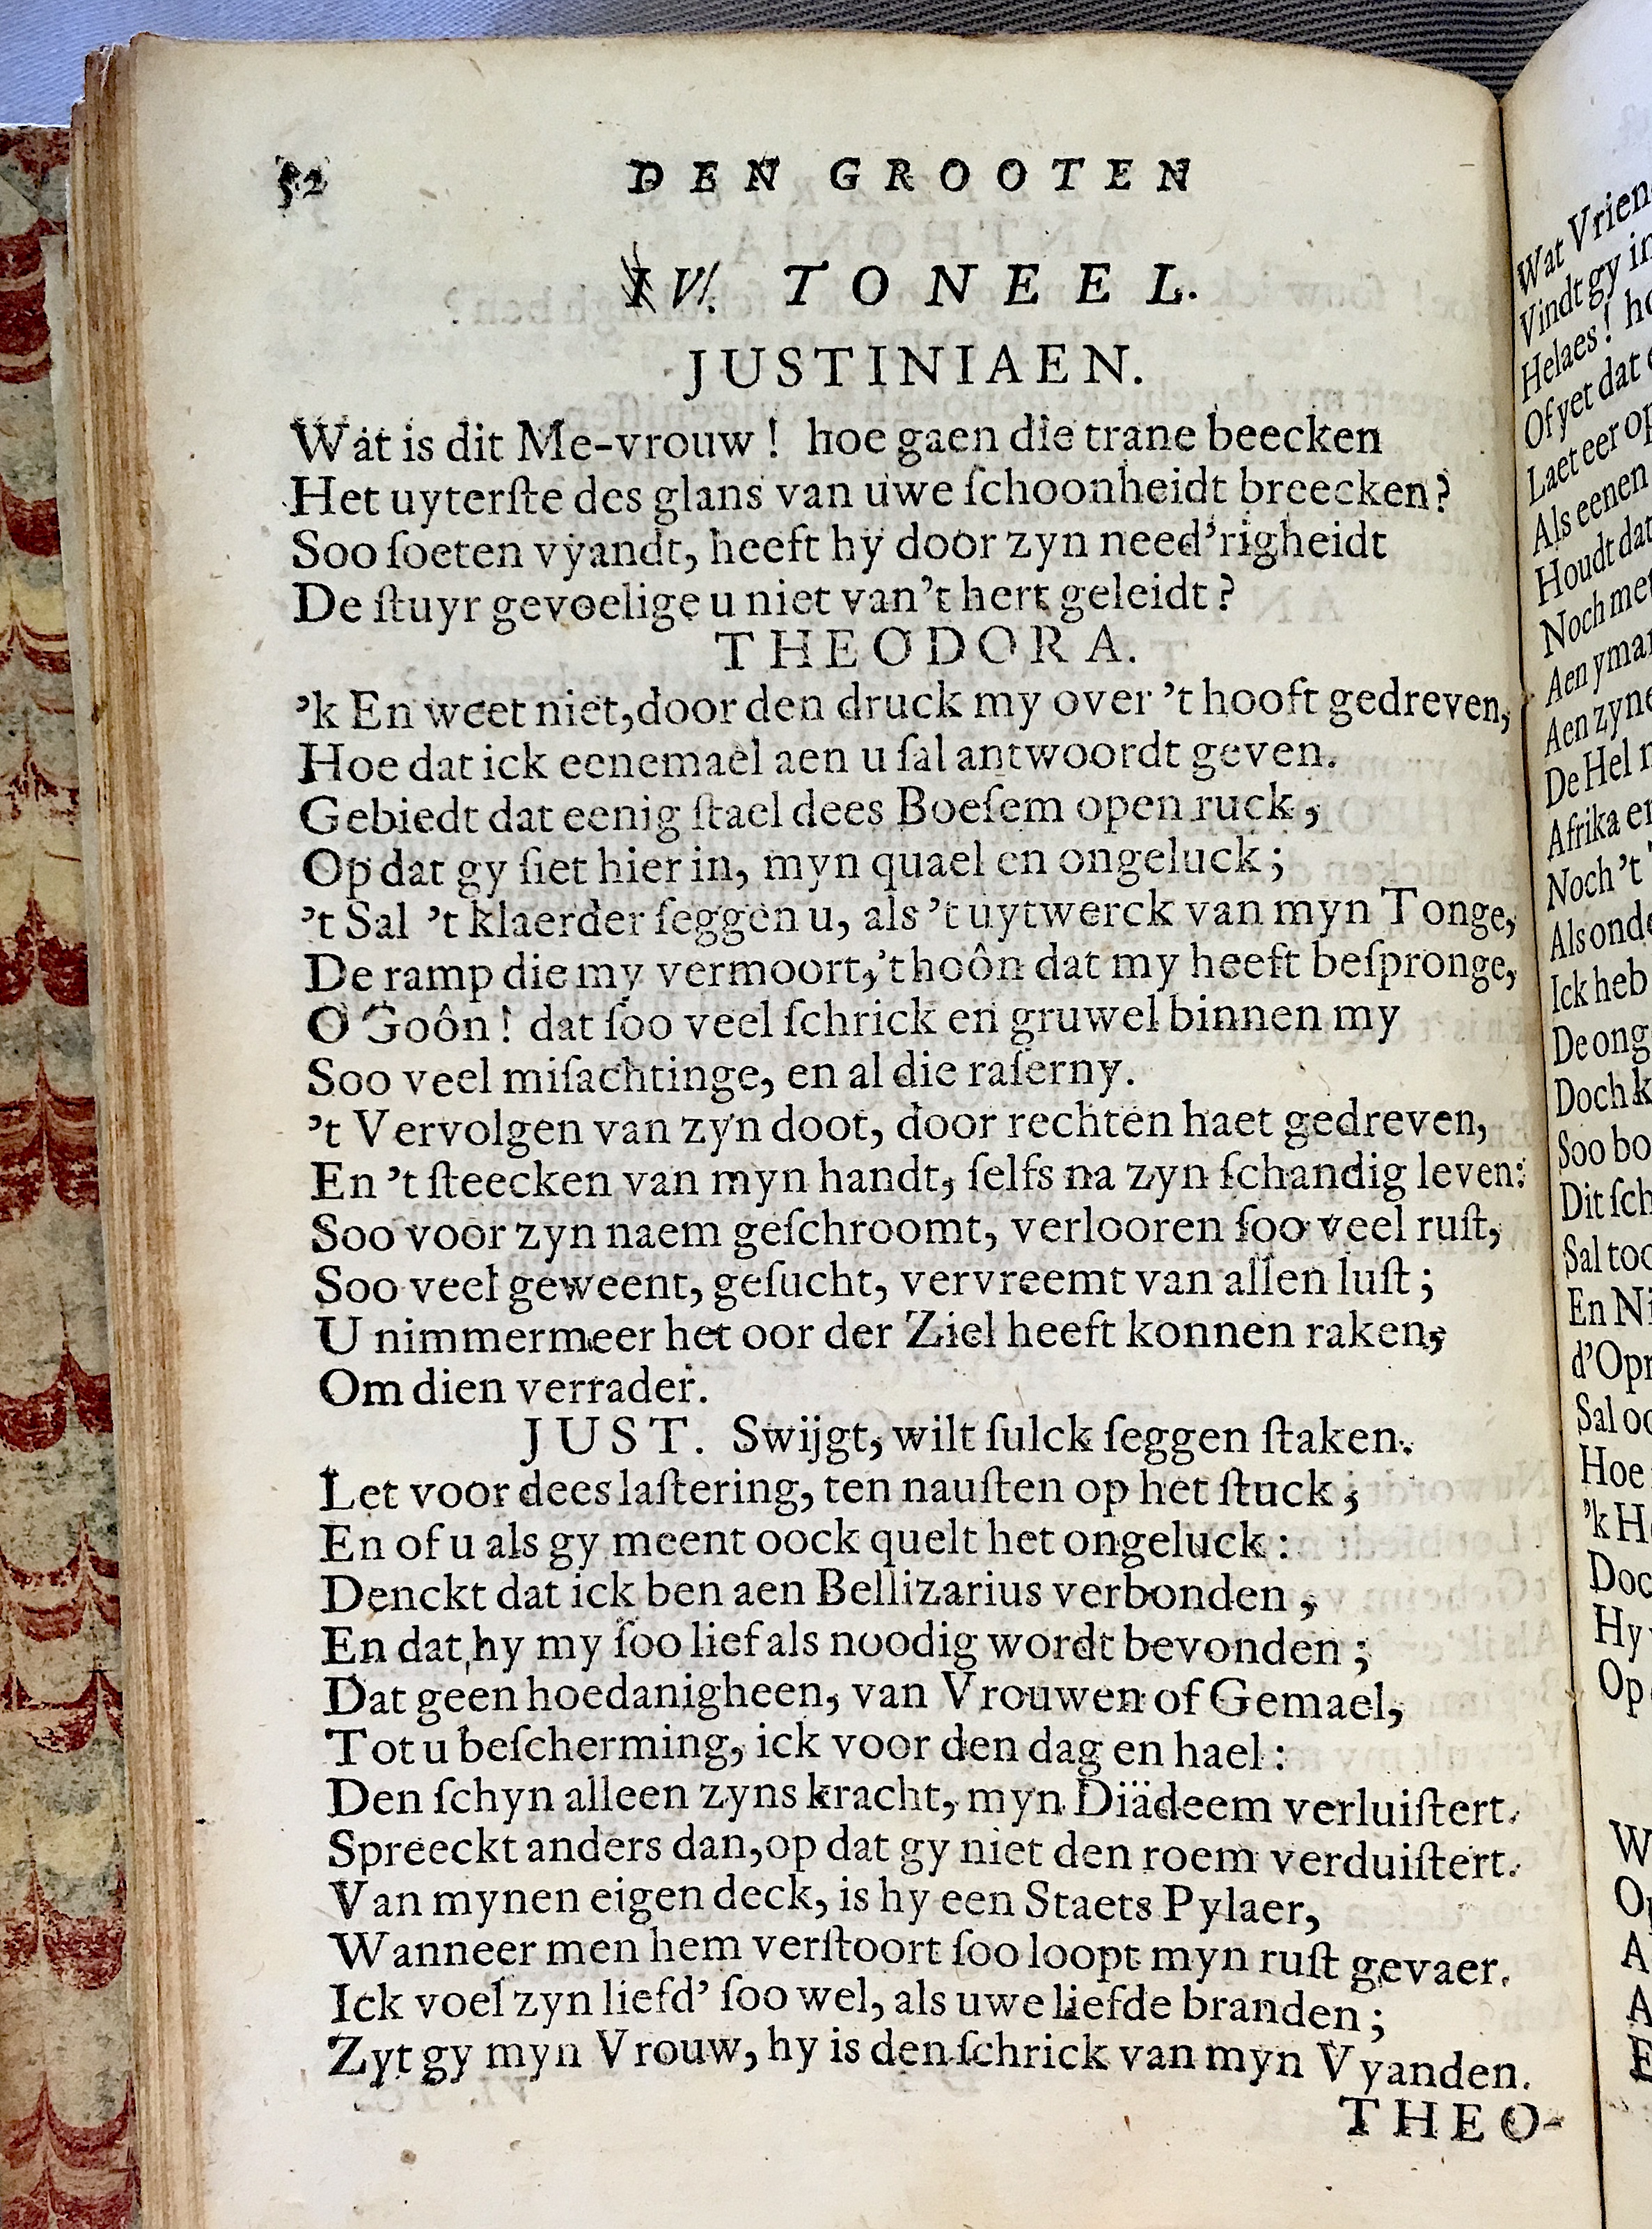 52 DEN GROOTEN
IV. TONEEL.
JUSTINIAEN.
Wat is dit Me-vrouw! hoe gaen die trane beecken
Het uyterſte des glans van uwe ſchoonheidt breecken?
Soo ſoeten vyandt, heeft hy door zyn need'righeidt
De ſtuyr gevoelige u niet van't hert geleidt?
THEODORA.
'k En weet niet, door den druck my over 't hooft gedreven,
Hoe dat ick eenemael aen u ſal antwoordt geven.
Gebiedt dat eenig ſtael dees Boeſem open ruck,
Op dat gy ſiet hier in, myn quael en ongeluck;
't Sal 't klaerder ſeggen u, als 't uytwerck van myn Tonge,
De ramp die my vermoort,'t hoôn dat my heeft beſpronge,
O Goôn! dat ſoo veel ſchrick en gruwel binnen my
Soo veel miſachtinge, en al die raſerny.
't Vervolgen van zyn doot, door rechten haet gedreven,
En 't ſteecken van myn handt, ſelfs na zyn ſchandig leven:
Soo voor zyn naem geſchroomt, verlooren ſoo veel ruſt,
Soo veel geweent, geſucht, vervreemt van allen luſt;
U nimmermeer het oor der Ziel heeft konnen raken,
Om dien verrader.
JUST. Swijgt, wilt ſulck ſeggen ſtaken.
Let voor dees laſtering, ten nauſten op het ſtuck;
En of u als gy meent oock quelt het ongeluck:
Denckt dat ick ben aen Bellizarius verbonden,
En dat hy my ſoo lief als noodig wordt bevonden;
Dat geen hoedanigheen, van Vrouwen of Gemael,
Tot u beſcherming, ick voor den dag en hael:
Den ſchyn alleen zyns kracht, myn Diädeem verluiſtert.
Spreeckt anders dan, op dat gy niet den roem verduiſtert.
Van mynen eigen deck, is hy een Staets Pylaer,
Wanneer men hem verſtoort ſoo loopt myn ruſt gevaer.
Ick voel zyn liefd' ſoo wel, als uwe liefde branden;
Zyt gy myn Vrouw, hy is den ſchrick van myn Vyanden.
THEO-
Wat
Vindt gy
Helaes!
Of yet dat
Laet eer
Als eenen
Houdt
Noch
Aen
Aen
De Hel
Afrika
Noch 't
Als
Ick heb
De
Doch
Soo
Dit
Sal
En
Sal
Hoe
'k
Hy
Op